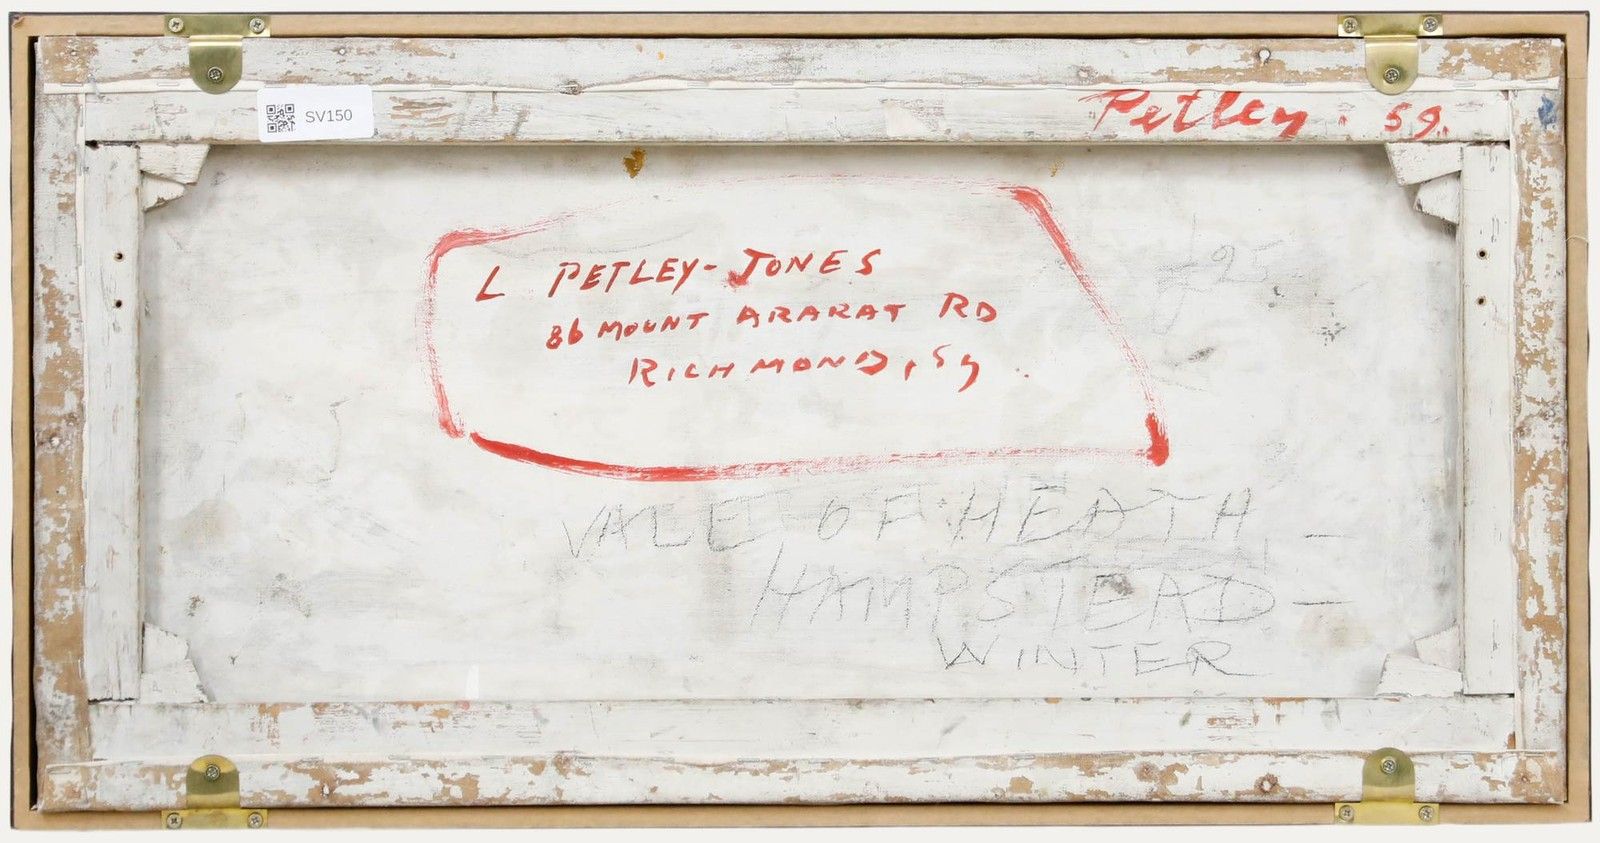 SV150
Petley . 59.
L PETLEY-JONES
86 MOUNT ARARAT RD
RICHMOND, Sy.
VALE OF HEATH -
HAMPSTEAD -
WINTER